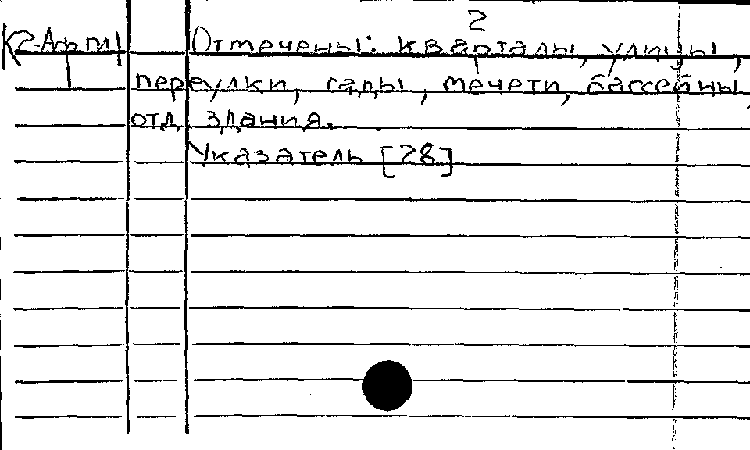 2
К2-Афр п1 Отмечены: кварталы, улицы,
переулки, сады, мечети, бассейны,
отд. здания.
Указатель [28]